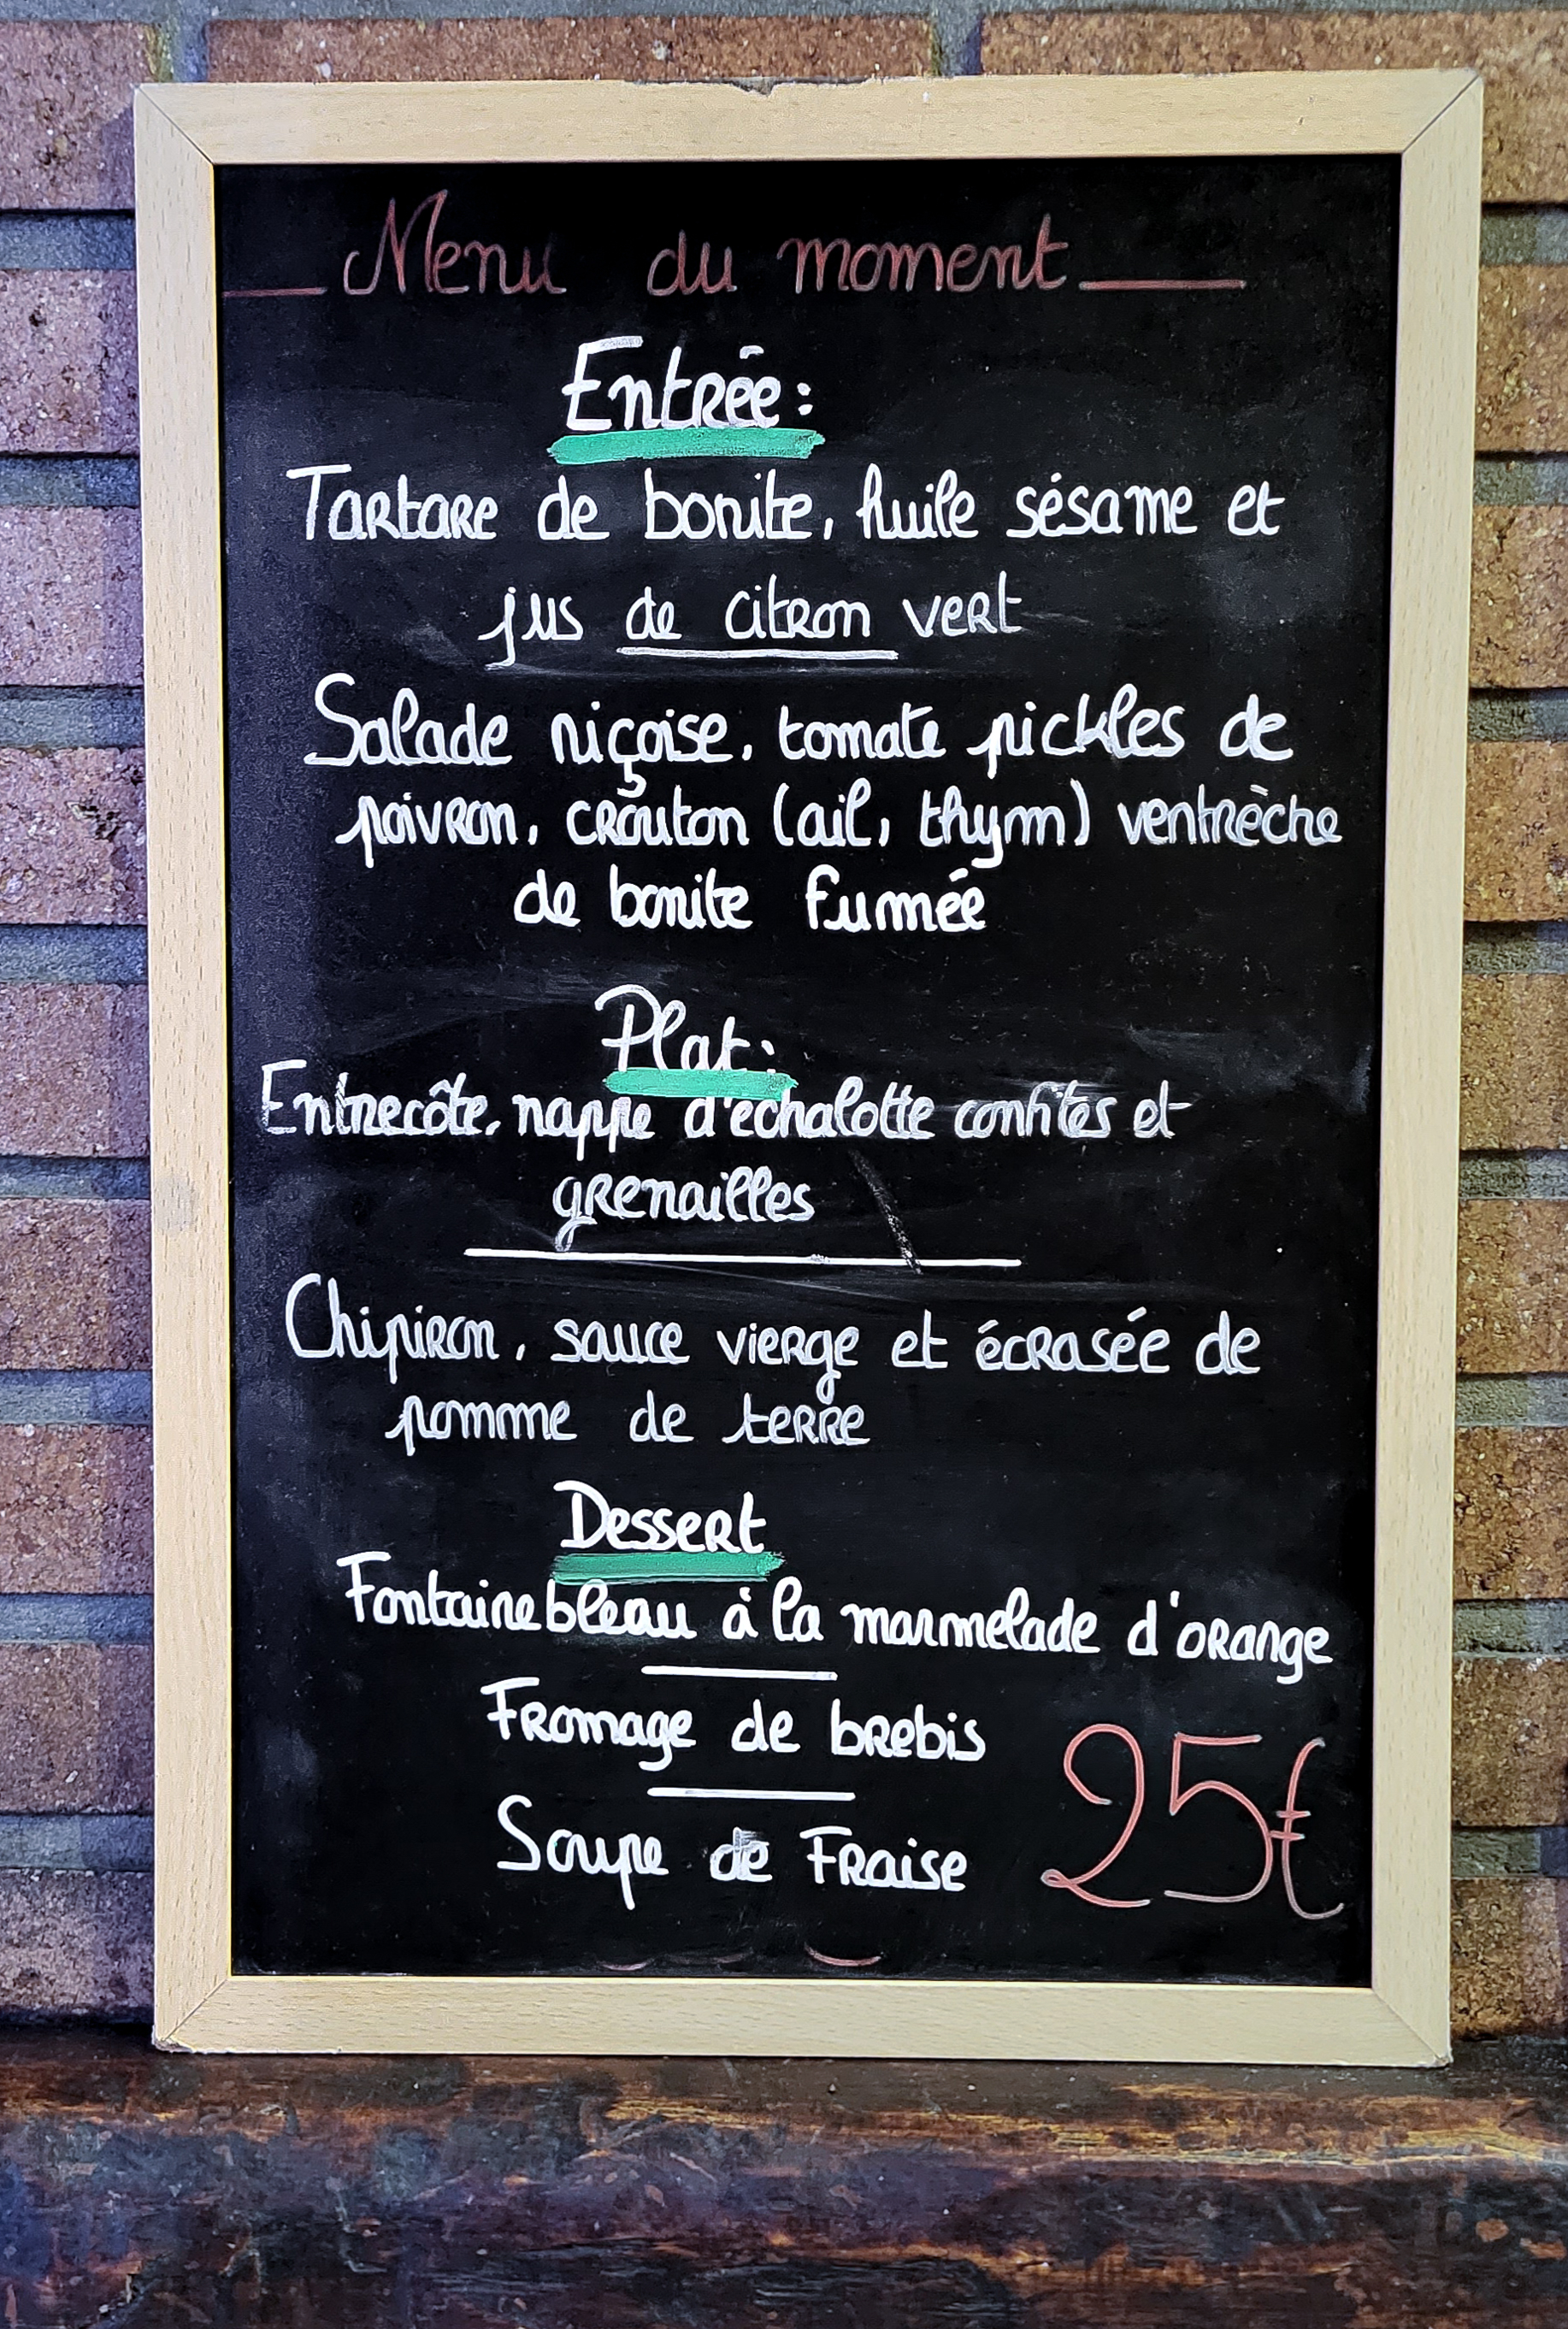 Menu du moment
Entrée:
Tartare de bonite, huile sésame et
jus de citron vert
Salade niçoise, tomate pickles de
poivron, croûton (ail, thym) ventrèche
de bonite fumée
Plat:
Entrecôte, nappe d'echalotte confites et
grenailles
Chipiron, sauce vierge et écrasée de
pomme de terre
Dessert
Fontainebleau à la marmelade d'orange
Fromage de brebis
Soupe de Fraise
25€